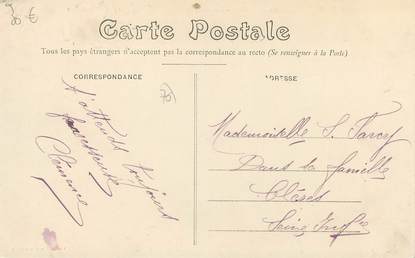 30 €
Carte Postale
Tous les pays étrangers n'acceptent pas la correspondance au recto (Se renseigner à la Poste)
CORRESPONDANCE
J'attends toujours
Clémence
76
ADRESSE
Mademoiselle S. Tarcy
Dans la famille
Clères
Seine Infre